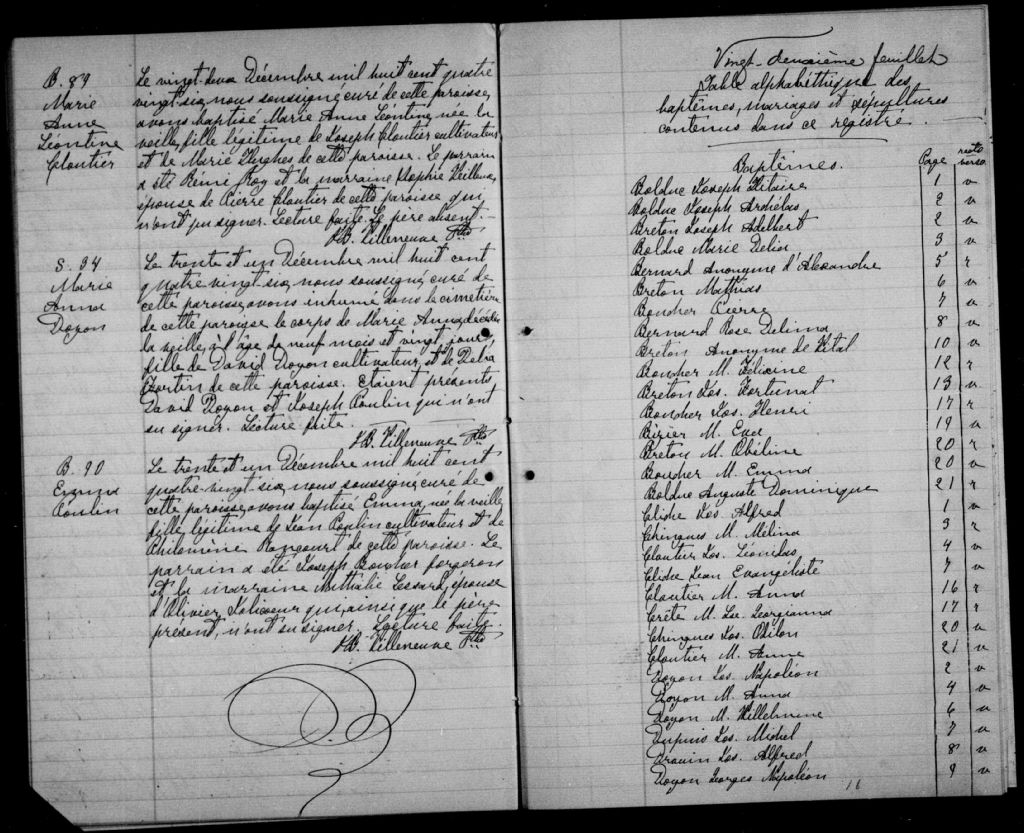 B. 89
Marie
Anne
Léontine
Cloutier
Le vingt-deux Décembre mil huit cent quatre
vingt-six, nous soussigné curé de cette paroisse,
avons baptisé Marie Anne Léontine, née la
veille, fille légitime de Joseph Cloutier cultivateur
et de Marie Hughes de cette paroisse. Le parrain
a été Rémi Roy et la marraine Sophie Veilleux,
épouse de Pierre Cloutier de cette paroisse qui
n'ont pu signer. Lecture faite. Le père absent.
J.B. Villeneuve Ptre
S. 34
Marie
Anna
Doyon
Le trente et un Décembre mil huit cent
quatre-vingt-six, nous soussigné, curé de
cette paroisse, avons inhumé dans le cimetière
de cette paroisse le corps de Marie Anna, décédée
la veille, à l'âge de neuf mois et vingt jours,
fille de David Doyon cultivateur, et de
Fortin de cette paroisse. Etaient présents
David Doyon et Joseph Poulin qui n'ont
su signer. Lecture faite.
J.B. Villeneuve Ptre
B. 90
Emma
Poulin
Le trente et un Décembre mil huit cent
quatre-vingt-six, nous soussigné, curé de
cette paroisse, avons baptisé Emma, née la veille
fille légitime de Jean Poulin cultivateur et de
Philomène Rancourt de cette paroisse. Le
parrain a été Joseph Boucher forgeron
et la marraine Nathalie Lessard, épouse
d'Olivier Jolicoeur qui, ainsi que le père
présent, n'ont su signer. Lecture faite.
J.B. Villeneuve Ptre
Vingt-deuxième feuillet
Table alphabéthique des
baptêmes, mariages et sépultures
contenus dans ce régistre.
Baptêmes. Page recto verso
Bolduc Joseph Hilaire 1 v
Bolduc Joseph Archélas 2 v
Breton Joseph Adelbert 2 v
Bolduc Marie Delia 3 v
Bernard Anonyme d'Alexandre 5 r
Breton Mathias 6 v
Boucher Pierre 7 v
Bernard Rose Delima 8 v
Breton Anonyme de Vital 10 v
Boucher M. Félicine 12 r
Breton Jos. Fortunat 13 v
Boucher Jos. Henri 17 r
Bizier M. Eva 19 v
Breton M. Obéline 20 r
Boucher M. Emma 20 v
Bolduc Auguste Dominique 21 r
Cliche Jos. Alfred 1 v
Chingues M. Mélina 3 r
Cloutier Jos. Léonidas 4 v
Cliche Jean Evangéliste 7 v
Cloutier M. Anna 16 r
Crête M. Lse. Georgianna 17 r
Chingues Jos. Odilon 20 v
Cloutier M. Anne 21 v
Doyon Jos. Napoléon 2 v
Doyon M. Anna 4 v
Doyon M. Villelmine 6 v
Dupuis Jos. Michel 7 v
Drouin Jos. Alfred 8 v
Doyon Georges Napoléon 9 v